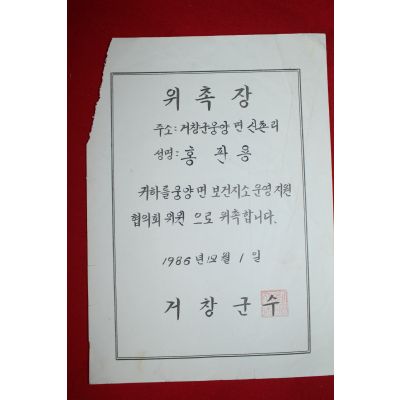 위촉장
주소: 거창군웅양 면 신촌리
성명: 홍 판 용
귀하를 웅양면 보건지소 운영 지원
협의회 위원 으로 위촉합니다.
1986 년 월 1 일
거 창 군 수